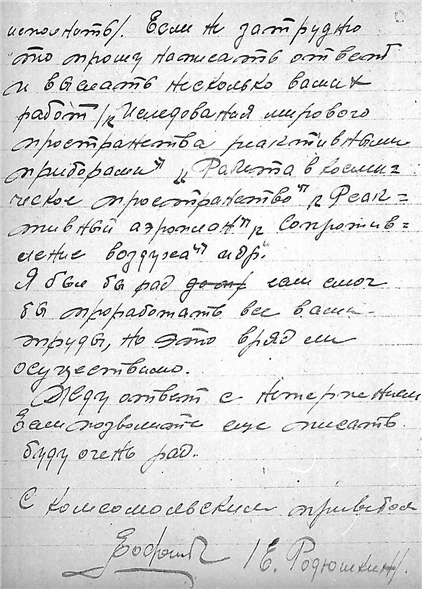 исполнять/. Если не затрудню
то прошу написать ответ
и выслать несколько ваших
работ /„Иследования мирового
пространства реактивными
приборами" „Ракета в косми=
ческое пространство" „Реак=
тивный аэроплан" „Сопротив=
ление воздуха" и др.
Я был бы рад если смог
бы проработать все ваши
труды, но это вряд ли
осуществимо.
Жду ответ с нетерпением
Если позволите еще писать
буду очень рад.
С комсомольским приветом
/Е. Родюшкин/.